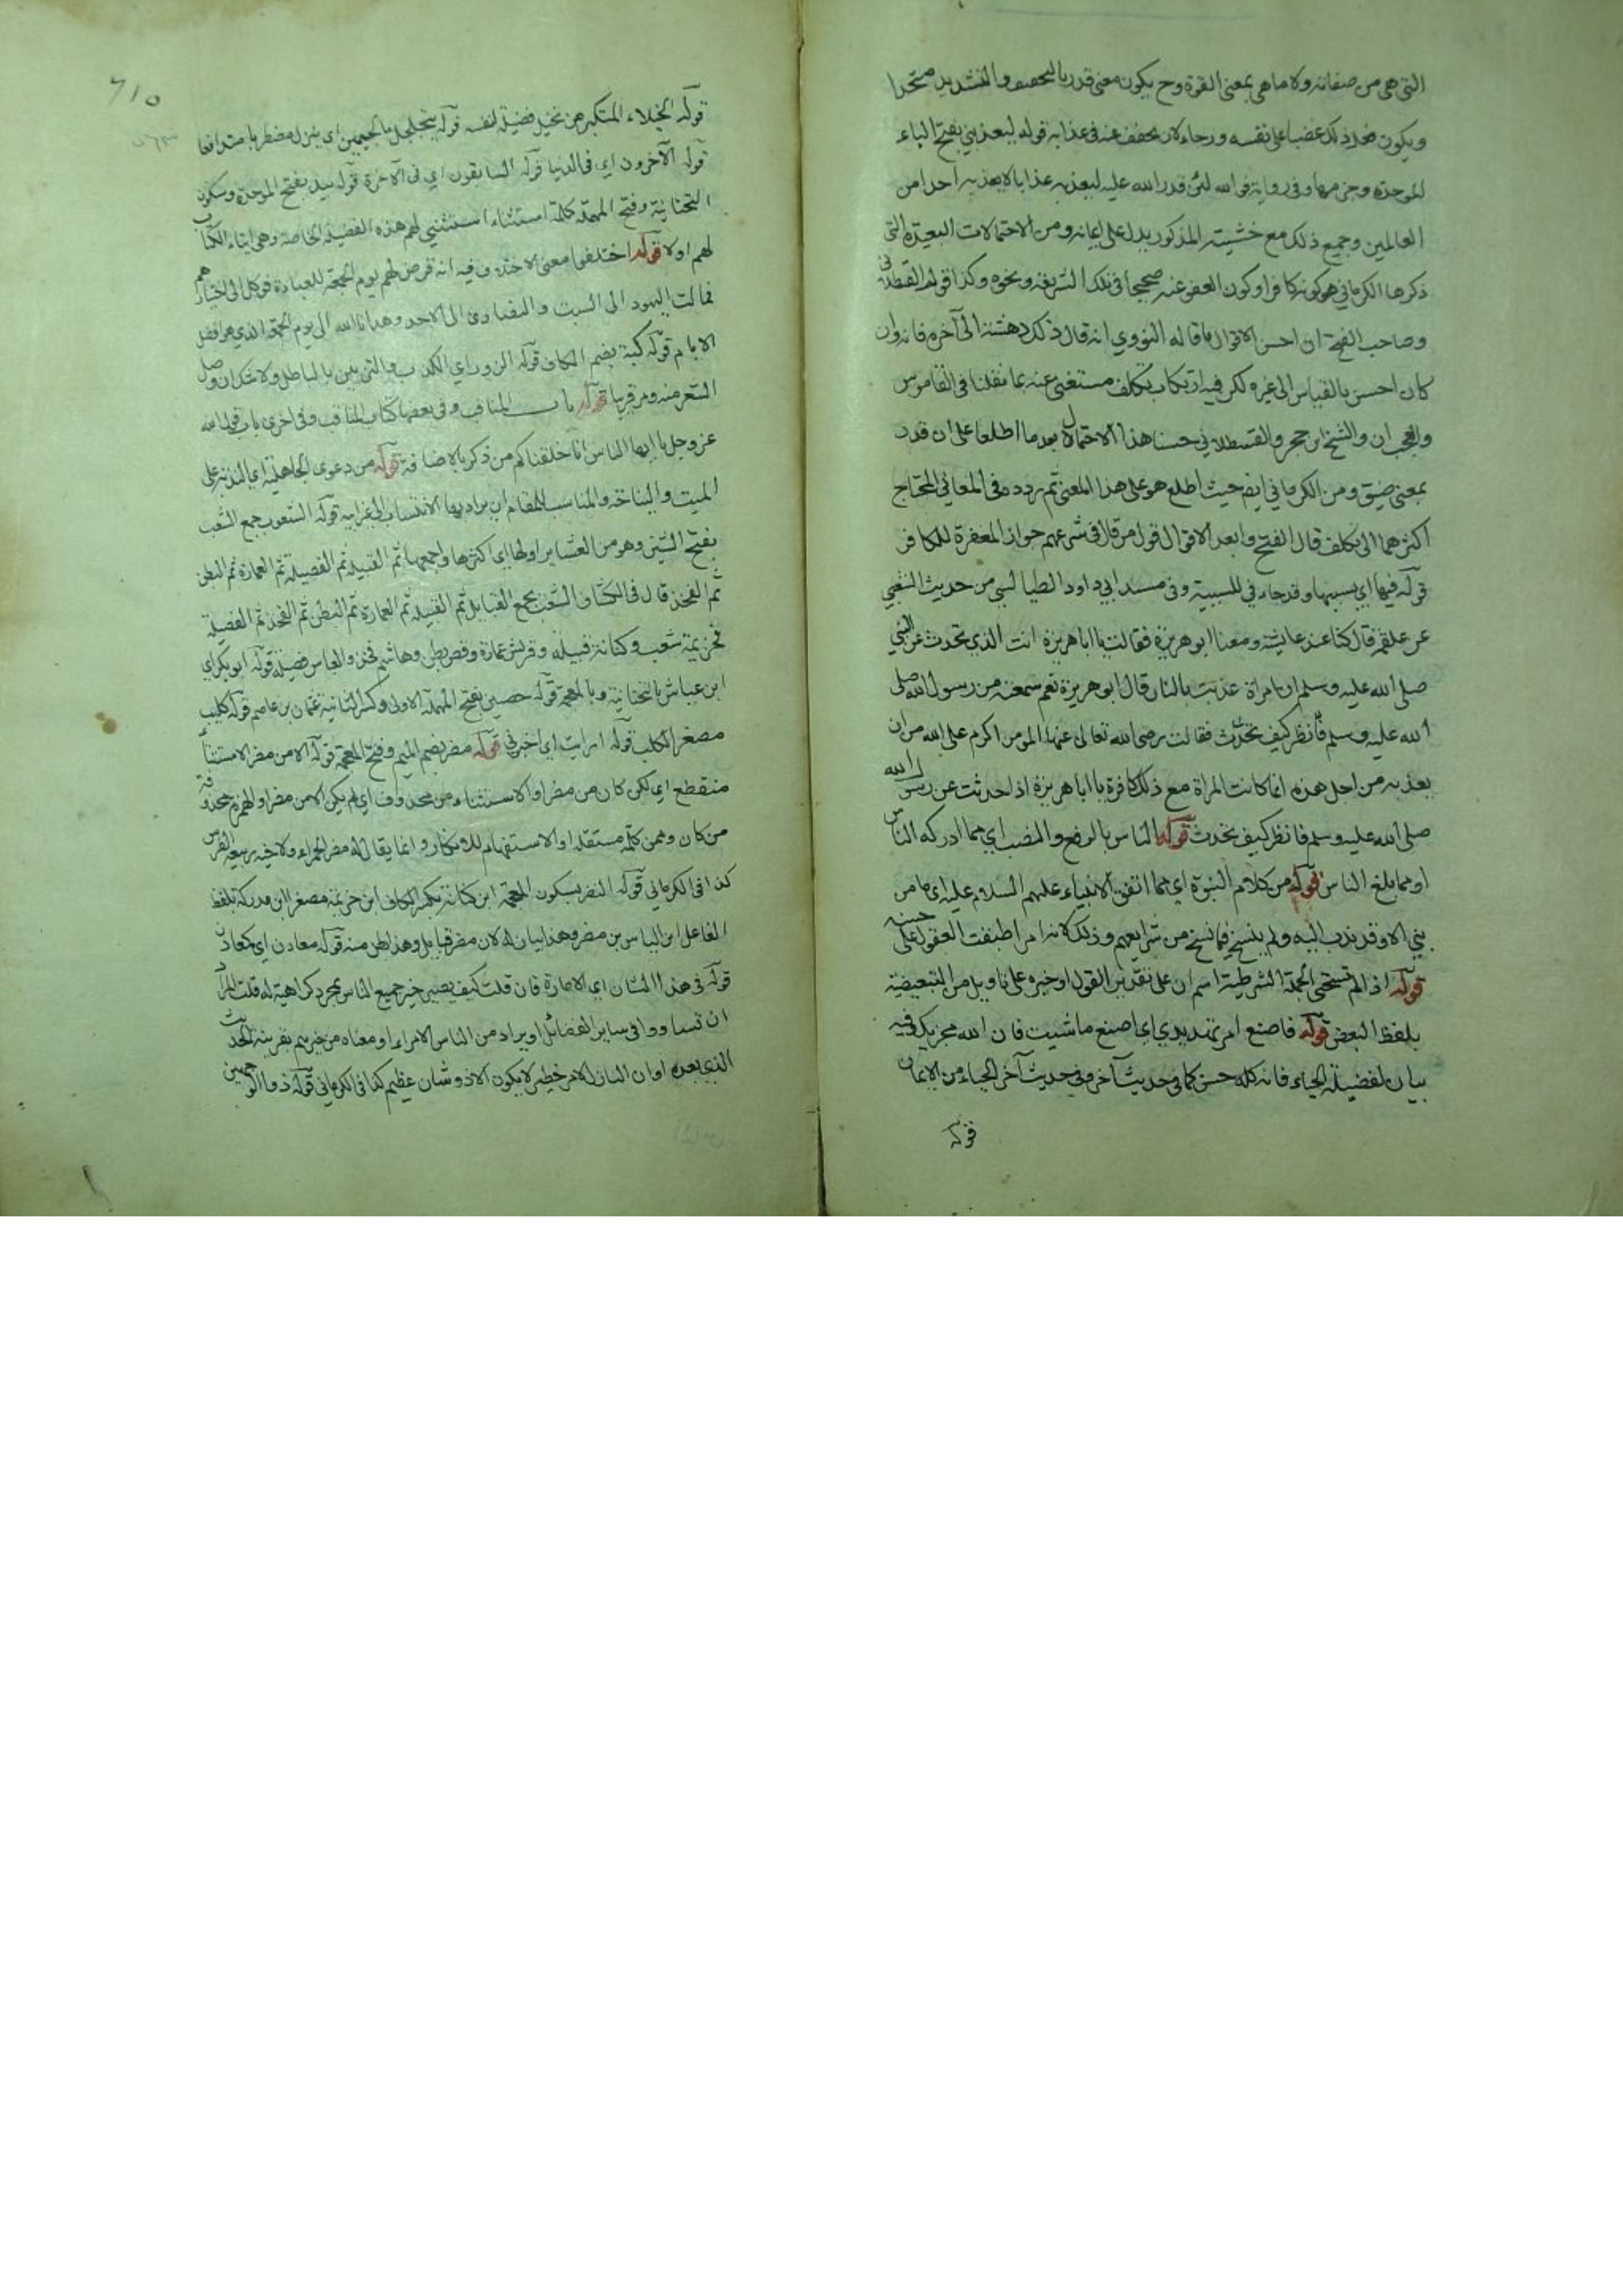 التي هي من صفاته ولا ما هي بمعنى القوة وح يكون معنى قدر بالتخفيف والتشديد متحدا
ويكون ضد ذلك غضبا على نفسه ورجاء لان يخفف عنه في عذابه قوله ليعذبني بفتح الباء
الموحدة وجزمها وفي رواية فو الله لئن قدر الله عليه ليعذبه عذابا لا يعذبه احدا من
العالمين وجميع ذلك مع خشيته المذكور يدل على ايمانه ومن الاحتمالات البعيدة التي
ذكرها الكرماني هو كونه كافرا وكون العفو عنه صحيحا في تلك الشريعة ونحوه وكذا قول القسطلاني
وصاحب الفتح ان احسن الاقوال ما قاله النووي انه قال ذلك دهشته الى آخره فانه وان
كان احسن بالقياس الى غيره لكن فيه ارتكاب تكلف مستغنى عنه بما نقلنا في القاموس
والعجب ان والشيخ ابن حجر والقسطلاني حسنا هذا الاحتمال بعد ما اطلعا على ان قدر
بمعنى ضيق ومن الكرماني ايض حيث اطلع هو على هذا المعنى ثم ردده في المعاني المحتاج
اكثرهما الى تكلف قال الفتح وابعد الاقوال قول من قال في شرعهم جواز المغفرة للكافر
قوله فيها اي بسببها وقد جاء في للسببية وفي مسند ابي داود الطيالسي من حديث الشعبي
عن علقمة قال كنا عند عايشة ومعنا ابو هريرة فقالت يا ابا هريرة انت الذي تحدث عن النبي
صلى الله عليه وسلم ان امراة عذبت بالنار قال ابو هريرة نعم سمعته من رسول الله صلى
الله عليه وسلم فانظر كيف تحدث فقالت رضى الله تعالى عنها المومن اكرم على الله من ان
يعذبه من اجل هذه انما كانت المراة مع ذلك كافرة يا ابا هريرة اذا حدثت عن رسول الله
صلى الله عليه وسلم فانظر كيف تحدث قوله الناس بالرفع والنصب اي مما ادركه الناس
او مما بلغ الناس قوله من كلام النبوة اي مما اتفق الانبياء عليهم السلام عليه اي ما من
نبي الا وقد ندب اليه ولم ينسخ فيما نسخ من شرايعهم وذلك لانه امر اطبقت العقول على حسنه
قوله اذا لم تستحي الجملة الشرطية اسم ان على تقدير القول او خبره على تاويل من التبعيضية
بلفظ البعض قوله فاصنع امر تهديدي اي اصنع ما شيت فان الله مجزيك فيه
بيان لفضيلة الحياء فانه كله حسن كما في حديث آخر وفي حديث آخر الحياء من الايمان
قوله
٦١٥
قوله الخيلاء المتكبر من تخيل فضيلة لنفسه قوله يتجلجل بالجيمين اي ينزل مضطربا متدافعا
قوله الآخرون اي في الدنيا قوله السابقون اي في الآخرة قوله بيد بفتح الموحدة وسكون
التحتانية وفتح المهملة كلمة استثناء استثني لهم هذه الفضيلة الخاصة وهي ايتاء الكتاب
لهم اولا قوله اختلفوا معنى الاختلاف فيه انه فرض لهم يوم الجمعة للعبادة فوكل الى اختيارهم
فمالت اليهود الى السبت والنصارى الى الاحد وهدانا الله الى يوم الجمعة الذي هو افضل
الايام قوله كبة بضم الكاف قوله الزور اي الكذب والتزيين بالباطل ولا شك ان وصل
الشعر منه ومر قريبا قوله باب المناقب وفي بعضها كتاب المناقب وفي اخرى باب قول الله
عز وجل يا ايها الناس انا خلقناكم من ذكر بالاضافة قوله من دعوى الجاهلية اي الندبة على
الميت والنياحة والمناسب للمقام ان يراد بها الانتساب الى غير ابيه قوله الشعوب جمع الشعب
بفتح الشين وهو من العشاير اولها اي اكثرها واجمعها ثم القبيلة ثم الفصيلة ثم العمارة ثم البطن
ثم الفخذ قال في الكشاف الشعب يجمع القبايل ثم القبيلة ثم العمارة ثم البطن ثم الفخذ ثم الفصيلة
فخزيمة شعب وكنانة قبيلة وقريش عمارة وقصي بطن وهاشم فخذ والعباس فصيلة قوله ابو بكر اي
ابن عياش بالتحتانية وبالمعجمة قوله حصين بفتح المهملة الاولى وكسر الثانية عثمان بن عاصم قوله كليب
مصغر الكلب قوله ارايت اي اخبرني قوله مضر بضم الميم وفتح المعجمة قوله الا من مضر الاستثناء
منقطع اي لكن كان من مضر او الاستثناء من محذوف اي لم يكن الا من مضر او الهمزة محذوفة
من كان وممن كلمة مستقلة او الاستفهام للانكار وانما يقال له مضر الحمراء ولاخيه ربيعة الفرس
كذا في الكرماني قوله النضر بسكون المعجمة ابن كنانة بكسر الكاف ابن خزيمة مصغرا ابن مدركة بلفظ
الفاعل ابن الياس بن مضر وهذا بيان له لان مضر قبايل وهذا بطن منه قوله معادن اي كمعادن
قوله في هذا الشان اي الامارة فان قلت كيف يصير خير جميع الناس بمجرد كراهية له قلت المراد
ان تساووا في ساير الفضائل او يراد من الناس الامراء او معناه من خيرهم بقرينة الحديث
الذي بعده او ان النازل لامر خطير لا يكون الا ذو شان عظيم كذا في الكرماني قوله ذو الوجهين